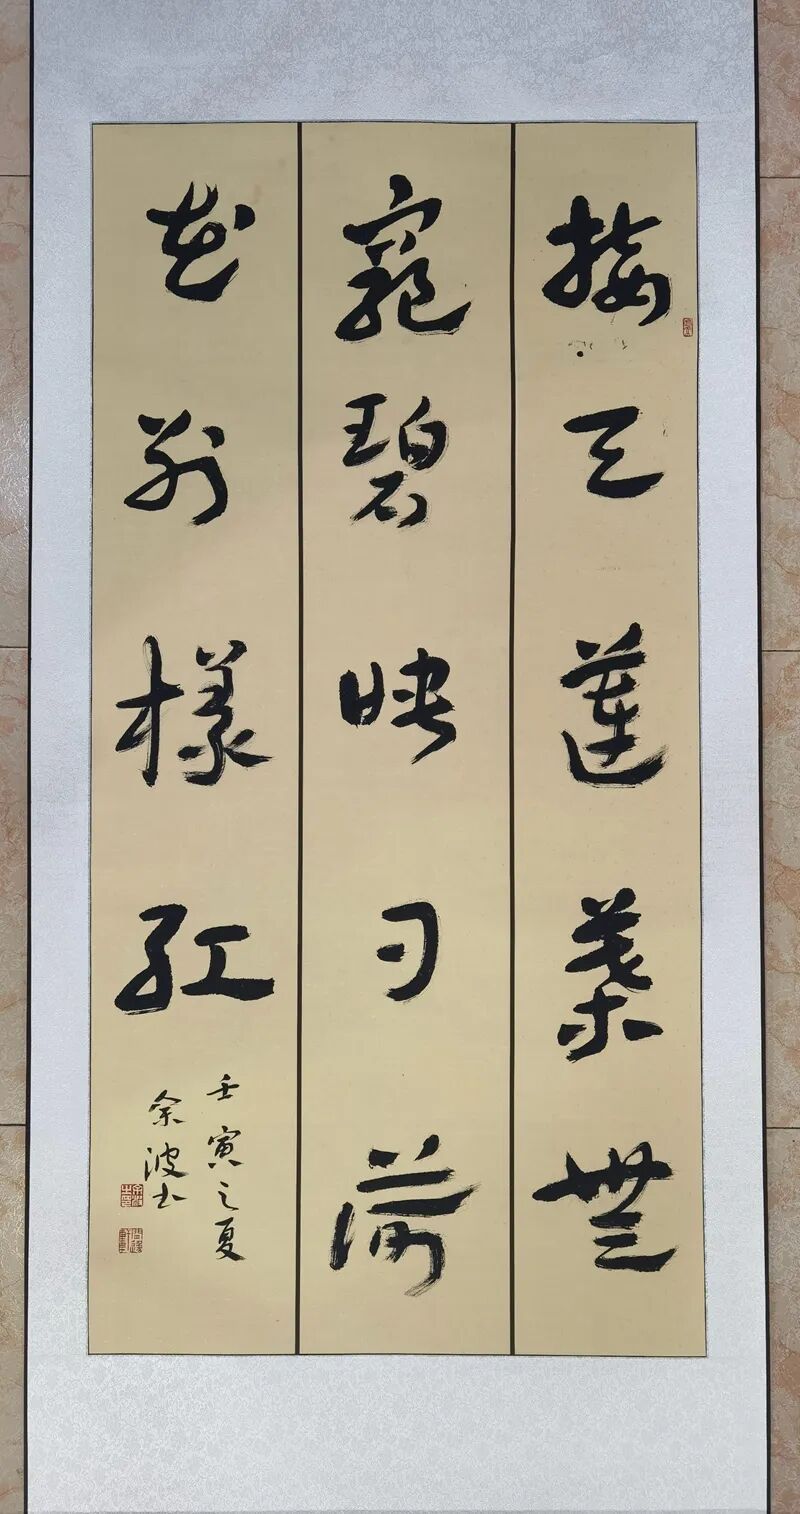 接天蓮葉無
窮碧映日荷
花別樣紅
壬寅之夏
余波书